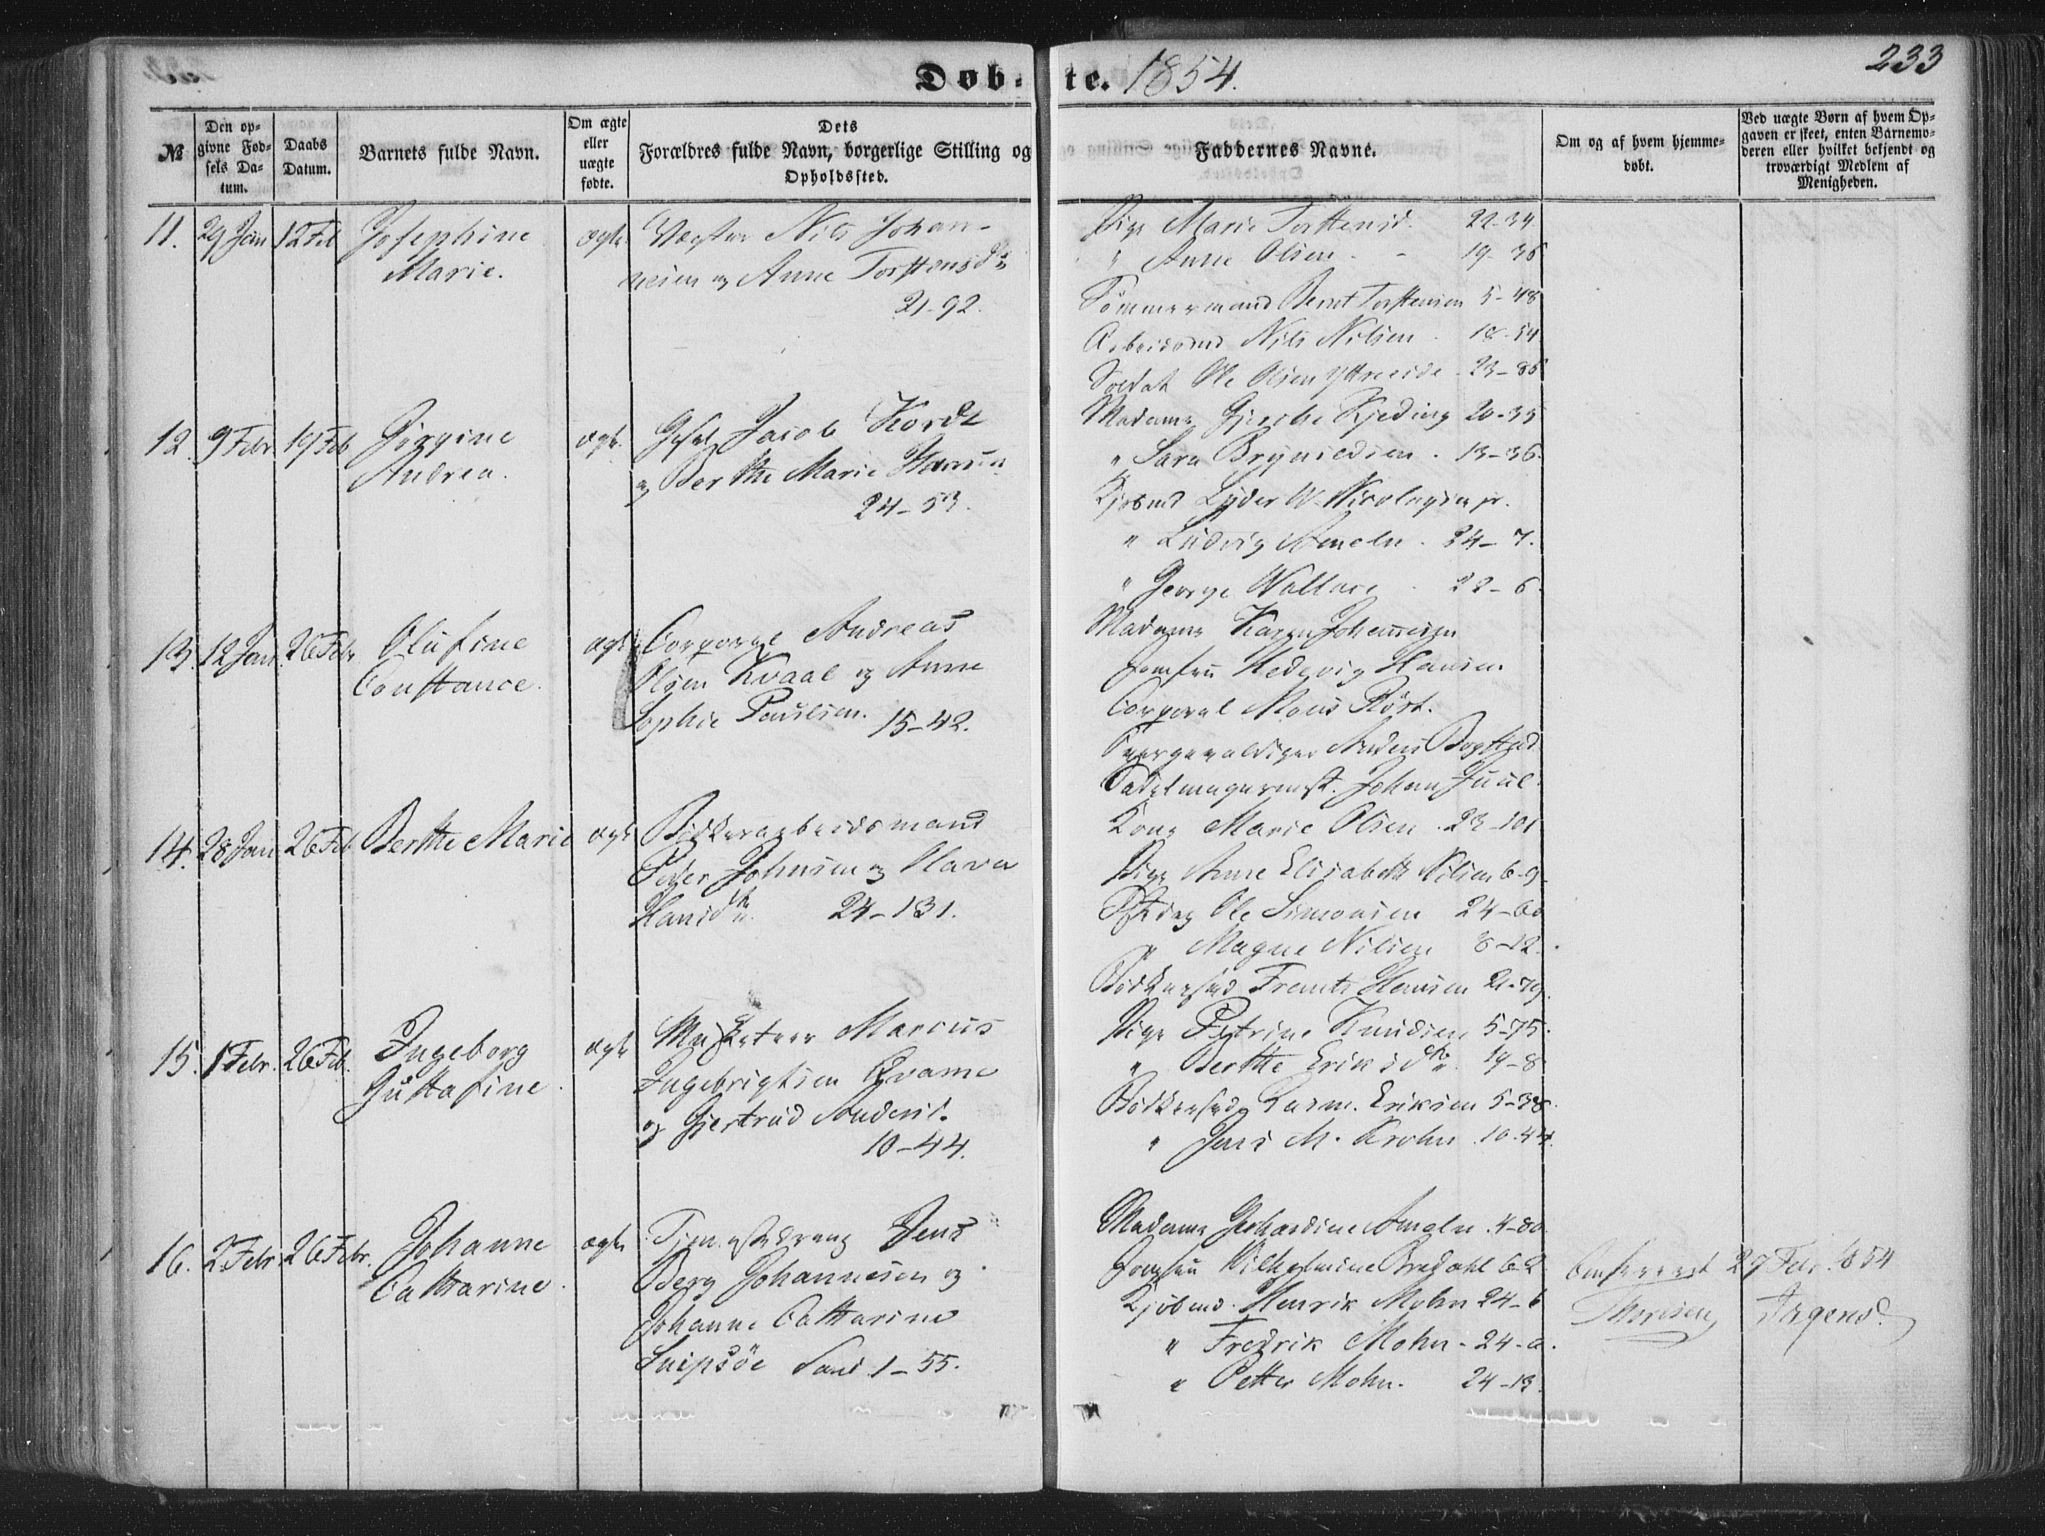 Døb-te. 1854.
233
№
Den op-
givne Fød-
sels Da-
tum.
Daabs
Datum.
Barnets fulde Navn.
Om ægte
eller
uægte
fødte.
Dets
Forældres fulde Navn, borgerlige Stilling og
Opholdssted.
Faddernes Navne.
Om og af hvem hjemme-
døbt.
Ved uægte Børn af hvem Op-
gaven er skeet, enten Barnemo-
deren eller hvilket bekjendt og
troværdigt Medlem af
Menigheden.
11. 29 Jan 12 Feb Josephine
Marie.
ægte
Vægter Nils Johan-
nesen og Anne Torstensdr
21-92.
Pige Marie Torstensd. 22-34.
" Anne Olsen - 19-36
Tømmermand Bernt Torstensen 5-48
Arbeidsmd Nils Nilsen. 18-54
Soldat Ole Olsen 23-86
12. 9 Febr 19 Feb Jörgine
Andrea.
ægte
Jacob Kordt
og Berthe Marie Hansen
24-53.
Madame 20-35
" Sara Brynildsen. 13-36.
Kjøbmd Lyder W. Nicolaysen jr.
" Ludvig Ameln. 24-7.
" George Wallace 22-6.
13. 12 Jan. 26 Febr Olufine
Constance.
ægte
Corporal Andreas
Olsen Kvaal og Anne
Sophie Paulsen. 15-42.
Madame Karen Johannesen
Jomfru Hedevig Hansen.
Corporal Mons
Anders Bogstad
Sadelmagermst. Johan Juul.
14. 28 Jan 26 Feb Berthe Marie
ægte
Bødkerarbeidsmand
Peder Johnsen og Olava
Hansdtr. 24-131.
Kone Marie Olsen. 23-101
Pige Anne Elisabeth Nilsen 6-9
Ole Simonsen 24-60
" Magne Nilsen 8-12.
Bødkersvd Frants Hansen 21-79.
15. 1 Febr. 26 Feb. Ingeborg
Gustafine.
ægte
Musketeer Marcus
Ingebrigtsen Qvame
og Gjertrud Andersd.
10-44.
Pige Petrine Knudsen 5-75.
" Berthe Eriksdtr. 19-8
Bødkersvd Rasm. Eriksen 5-38.
" Jens M. Krohn. 10-44.
16. 2 Febr 26 Febr. Johanne
Catharine.
ægte
Jens
Berg Johannesen og
Johanne Catharine
Snipsöe Sand. 1-55.
Madame Gerhardine Ameln. 4-80
Jomfru Vilhelmine Bredahl 6-2
Kjøbmd. Henrik Mohn 24-6
" Fredrik Mohn - 24-a.
" Petter Mohn. 24-13.
27 Febr. 1854